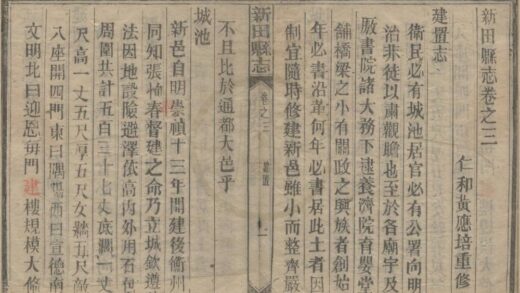 新田縣志卷之三
仁和黃應培重修
建置志
衛民必有城池居官必有公署向明
治非徒以肅觀瞻也至於各廟宇及
書院諸大務下逮養濟院育嬰堂
舖橋梁之小有關政之興廢者創始
年必書沿革何年必書居此土者因
制宜隨時修建新邑雖小而整齊嚴
新田縣志
卷之三
建置
一
不且比於通都大邑乎
城池
新邑自明崇禎十三年開建後衡州
同知張春督建之命乃立城欽遵
法因地設險澤依高內外用石包
周圍共計五百三十七丈底濶一丈
尺高一丈五尺厚五尺女牆五尺敵
八座開四門東曰西曰宣德南
文明北曰迎恩每門建樓規模大